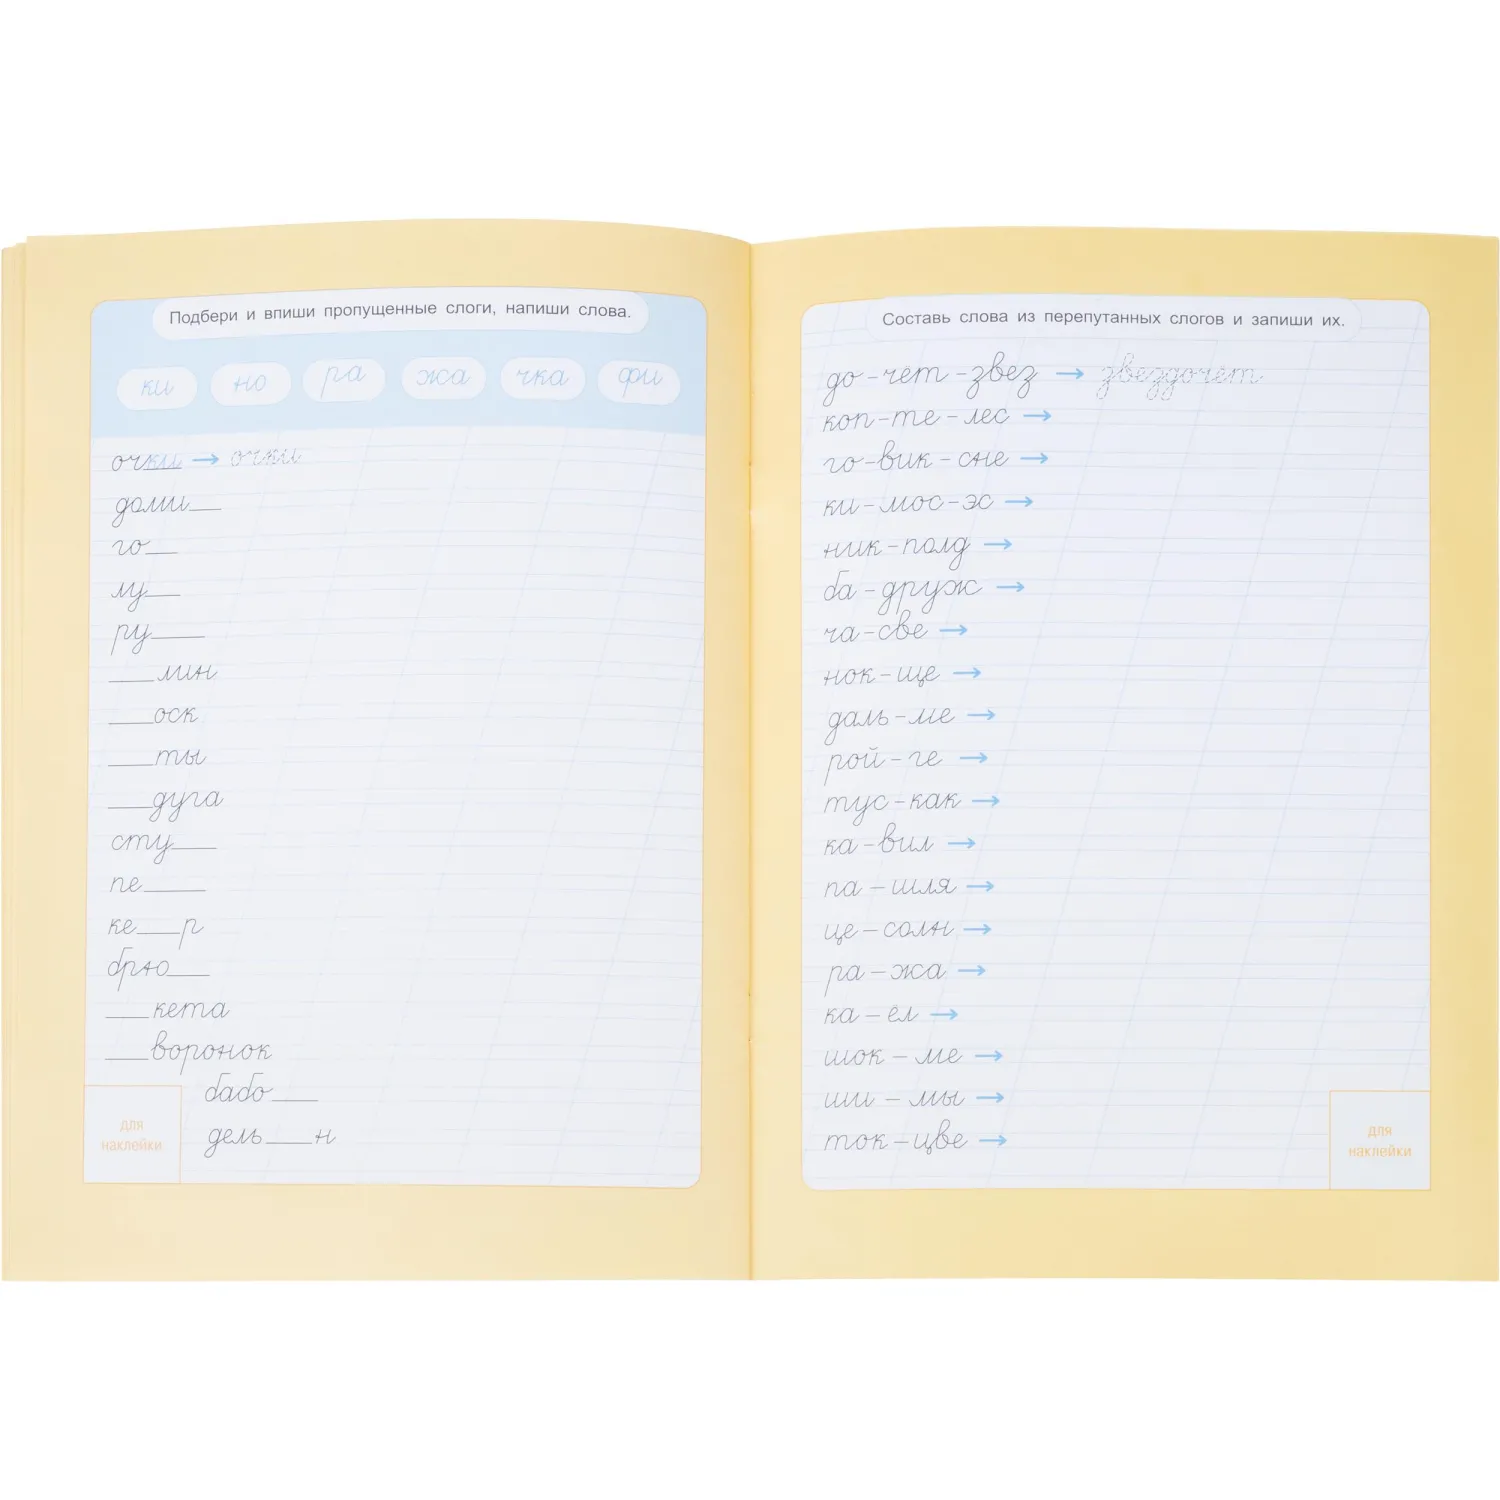 Подбери и впиши пропущенные слоги, напиши слова.
ки но ра жа чка фи
очки → очки
доми__
го__
лу__
ру__
__мин
__оск
__ты
__дуга
сту__
пе__
ке__р
брю__
__кета
__воронок
бабо__
дель__н
для
наклейки
Составь слова из перепутанных слогов и запиши их.
до-чёт-звез → звездочёт
коп-те-лес →
го-вик-сне →
ки-мос-эс →
ник-полд →
ба-друж →
ча-све →
нок-ще →
даль-ме →
рой-ге →
тус-как →
ка-вил →
па-шля →
це-солн →
ра-жа →
ка-ёл →
шок-ме →
ши-мы →
ток-цве →
для
наклейки